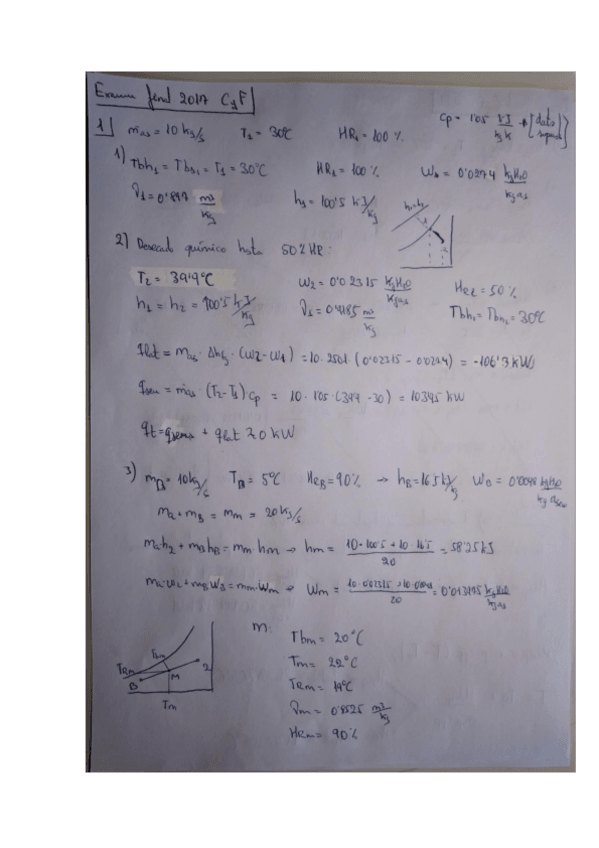 Examen final 2017 CyF
1 ṁas = 10 kg/s T1 = 30ºC HR1 = 100 % Cp = 1'05 kJ/kg k → [dato
1) Tbh1 = Tbs1 = T1 = 30ºC HR1 = 100 % W1 = 0'0274 kgH2O/kg as
h1 = 100'5 kJ/kg
m3/kg
2) Desecado químico hasta 50% HR:
T2 = 39'9ºC W2 = 0'02315 kgH2O/kgas HR2 = 50 %
h1 = h2 = 100'5 kJ/kg m3/kg Tbh1 = Tbh2 = 30ºC
qlat = mas · Δhfg · (W2 - W1) = 10 · 2501 (0'02315 - 0'0274) = -106'3 kW
qsen = mas · (T2 - T1) · Cp = 10 · 1'05 · (39'9 - 30) = 103'95 kW
qt = qsens + qlat ≃ 0 kW
3) mB = 10 kg/s TB = 5ºC HRB = 90% → hB = 16'5 kJ/kg WB = kgH2O/kg
m2 + mB = mm = 20 kg/s
m2·h2 + mB hB = mm hm → hm = 10·100'5 + 10·16'5 / 20 = 58'25 kJ
m2·w2 + mB WB = mm·Wm → Wm = / 20 = kgH2O/kgas
Tbm 2
TRm B M
Tm
m:
Tbm = 20ºC
Tm = 22ºC
TRm = 19ºC
m3/kg
HRm = 90%